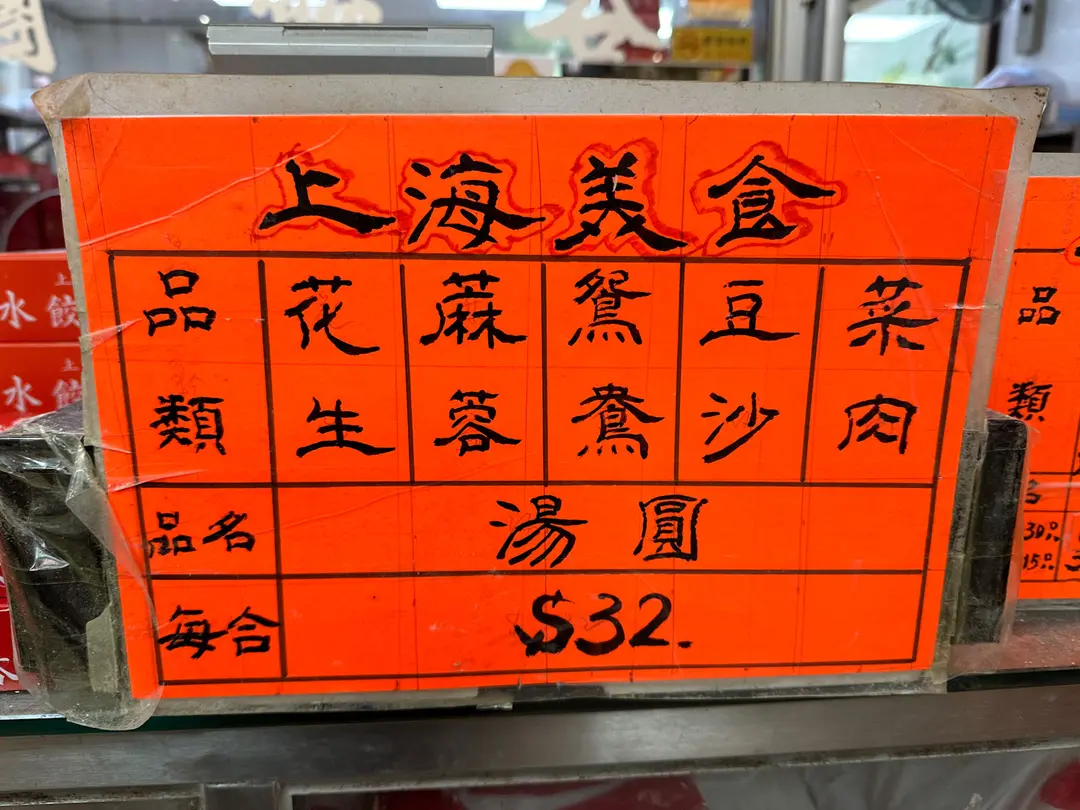 上海美食
品類 花生 蔴蓉 鴛鴦 豆沙 菜肉
品名 湯圓
每合 $32.
上
水餃
上
水餃
品類
名
30只
15只